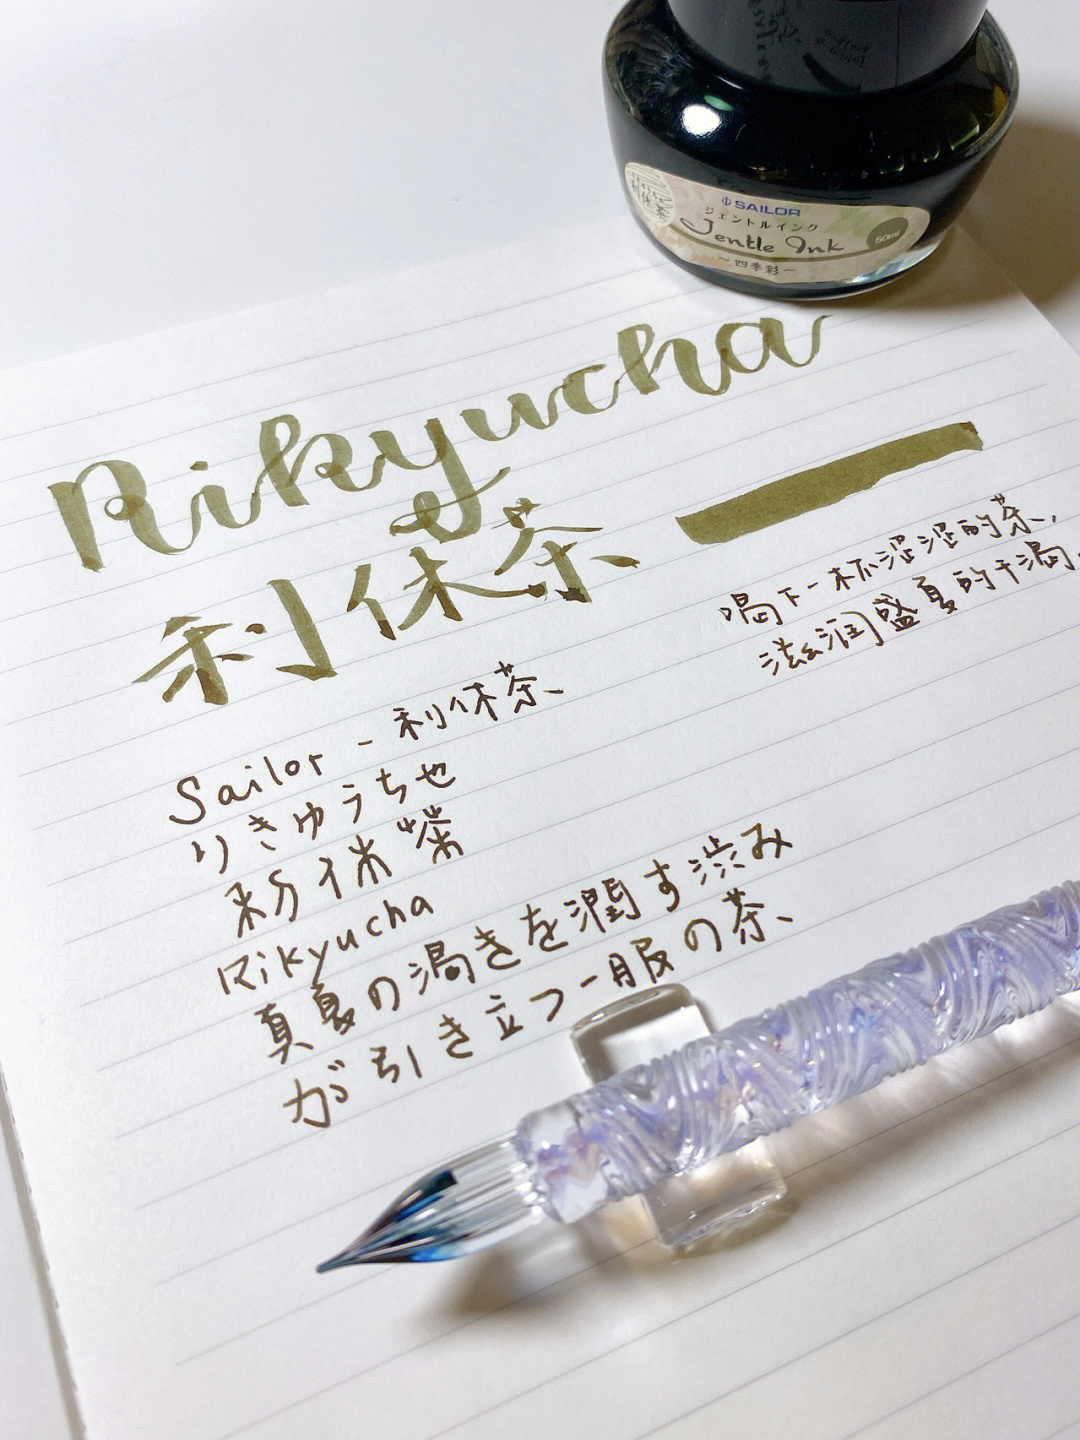 SAILOR
ジェントルインク
Jentle Ink
50ml
~四季彩~
利休茶
Rikyucha
利休茶
喝下一杯涩涩的茶,
滋润盛夏的干渴。
Sailor - 利休茶
りきゅうち也
利休茶
Rikyucha
真夏の渇きを潤す渋み
が引き立つ一服の茶、